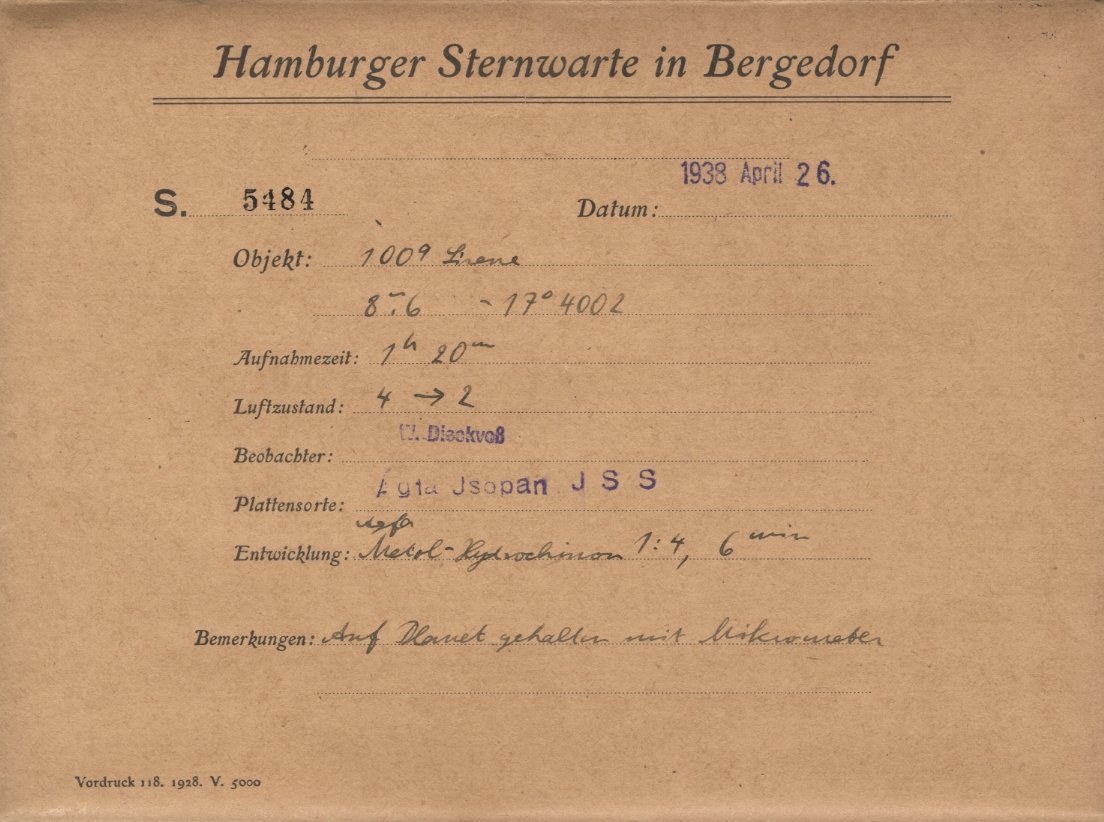 Hamburger Sternwarte in Bergedorf
S. 5484 Datum: 1938 April 26.
Objekt: 1009 Sirene
8ᵐ.6 -17° 4002
Aufnahmezeit: 1ʰ 20ᵐ
Luftzustand: 4 → 2
Beobachter: W. Dieckvoß
Plattensorte: Agfa Jsopan J S S
Agfa
Entwicklung: Metol-Hydrochinon 1:4, 6 min
Bemerkungen: Auf Planet gehalten mit Mikrometer
Vordruck 118. 1928. V. 5000